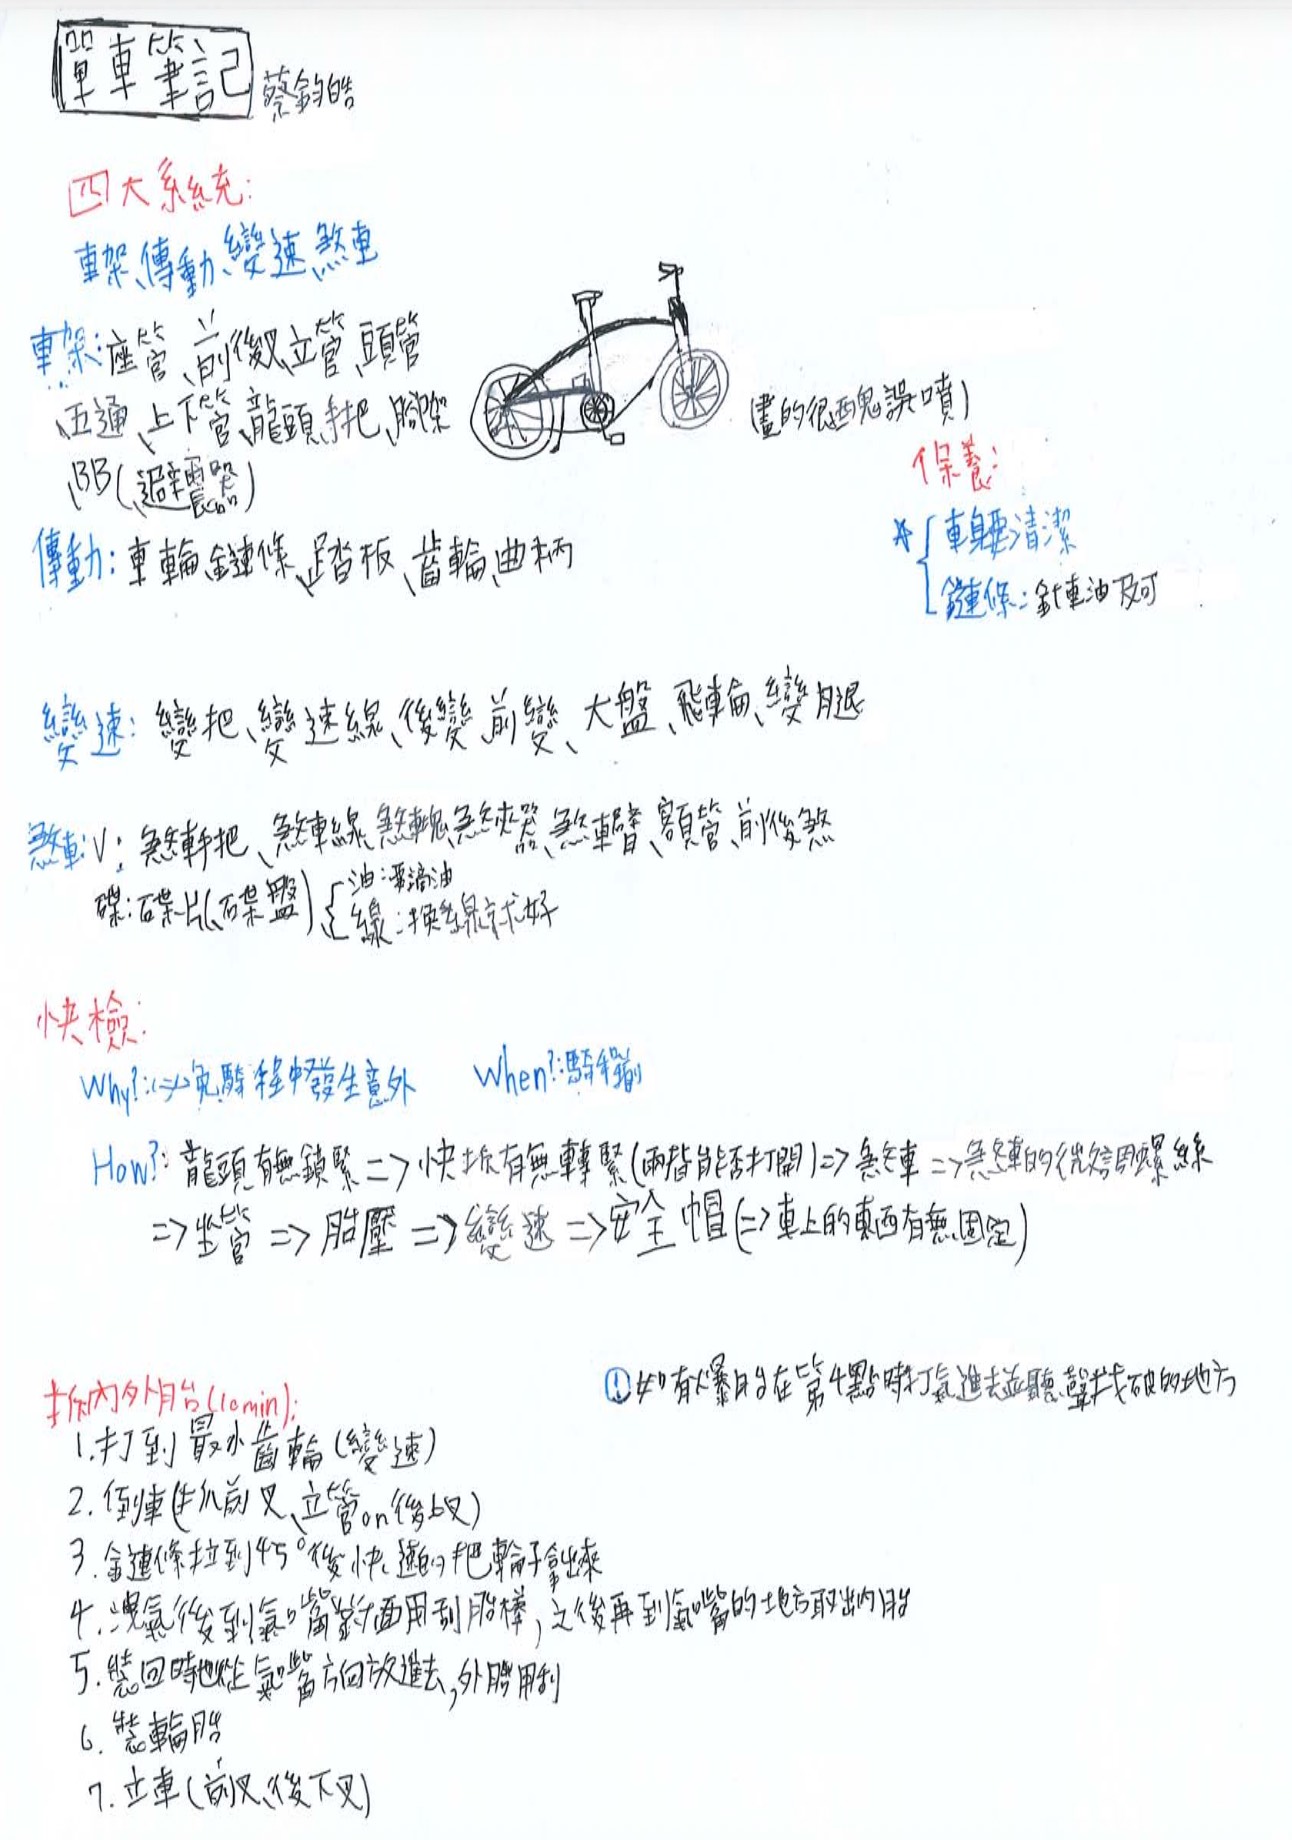 單車筆記 蔡鈞皓
四大系統:
車架、傳動、變速、煞車
車架:座管、前後叉、立管、頭管
、五通、上下管、龍頭、手把、腳架
、BB(避震器)
(畫的很醜誤噴)
傳動:車輪、鏈條、踏板、齒輪、曲柄
保養:
車身要清潔
鏈條:針車油及可
變速:變把、變速線、後變、前變、大盤、飛輪、變腿
煞車:V:煞車手把、煞車線、煞車塊、煞車夾器、煞車臂、額管、前後煞
碟:碟片(碟盤)
油:要請油
線:換線就好
快檢:
Why?:=>免騎程中發生意外
When?:騎程前
How?:龍頭有無鎖緊=>快拆有無轉緊(兩指能否打開)=>煞車=>煞車的螺絲
=>坐管=>胎壓=>變速=>安全帽(=>車上的東西有無固定)
拆內外胎(10min):
1.打到最小齒輪(變速)
2.倒車(抓前叉、立管on後上叉)
3.鏈條拉到45°後快速的把輪子拿出來
4.洩氣後到氣嘴對面用刮胎棒,之後再到氣嘴的地方取出內胎
5.裝回時也從氣嘴方向放進去,外胎用刮
6.裝輪胎
7.立車(前叉、後下叉)
!如有爆胎在第4點時打氣進去並聽聲找破的地方